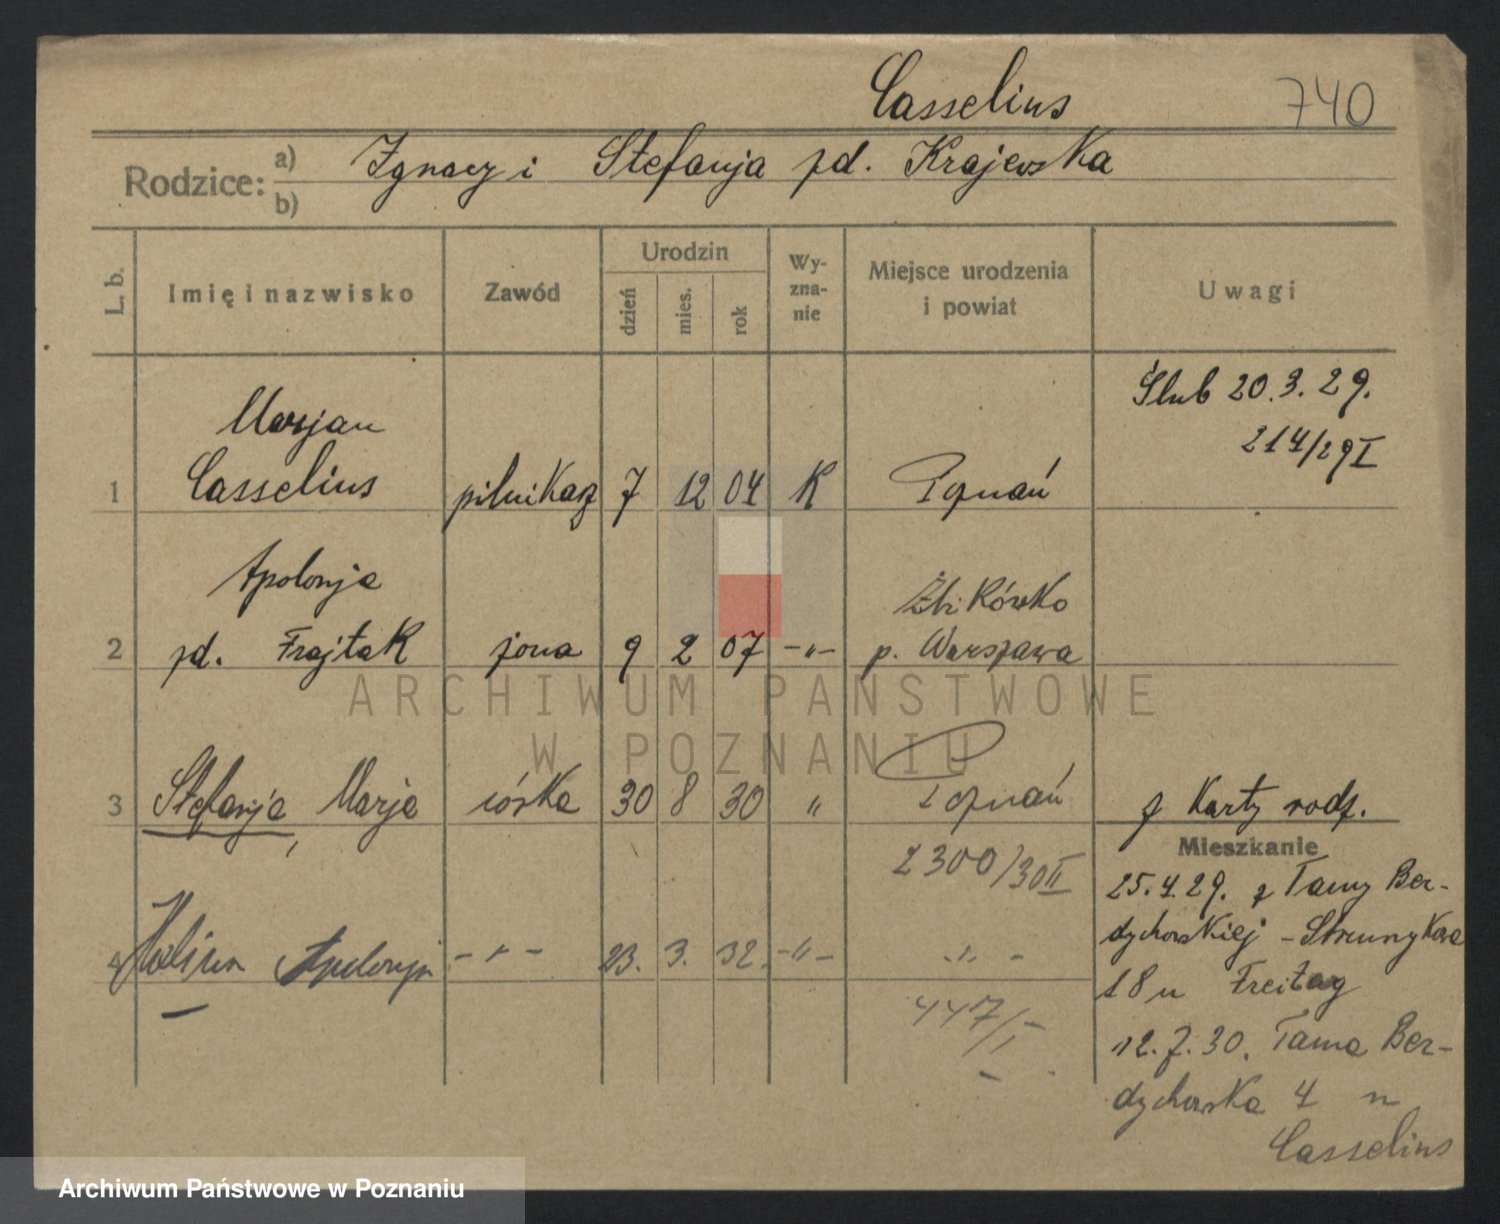 Casselius 740
Rodzice: a) Ignacy i Stefanja zd. Krajewska
b)
L. b. Imię i nazwisko Zawód Urodzin dzień mies. rok Wyznanie Miejsce urodzenia i powiat Uwagi
Ślub 20.3.29.
214/29 I
Marjan
1 Casselius pilnikarz 7 12 04 K Poznań
Apolonja Zbikówko
2 zd. Frajtak żona 9 2 07 -"- p. Warszawa
ARCHIWUM PAŃSTWOWE
W POZNANIU
3 Stefanja, Marja córka 30 8 30 " Poznań z Karty rodz.
2300/30 II
Mieszkanie
25.4.29. z Tamy Ber-
dychowskiej - Strumykowa
4 Halina Apolonja -"- 23. 3. 32. -"- -"-
18 u Freitag
447/I
12.7.30. Tama Ber-
dychowska 4 n
Casselius
Archiwum Państwowe w Poznaniu